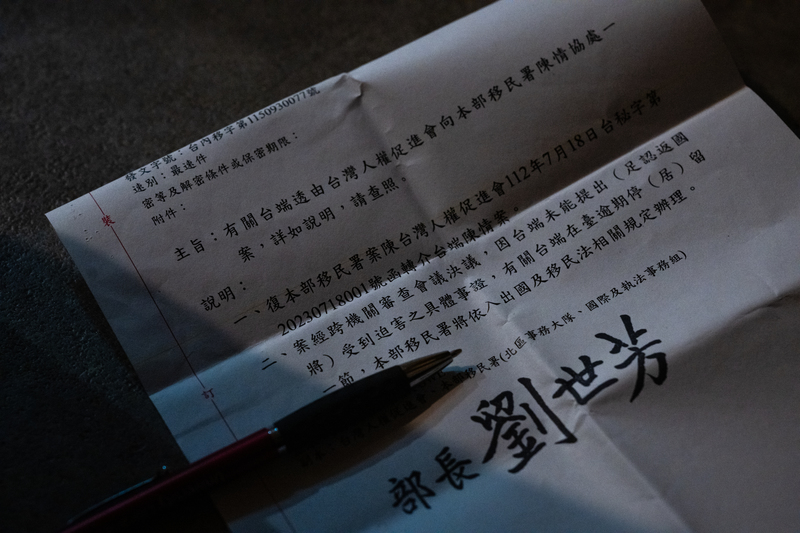 發文字號：台內移字第1150930077號
速別：最速件
密等及解密條件或保密期限：
附件：
主旨：有關台端透由台灣人權促進會向本部移民署陳情協處一
案，詳如說明，請查照。
說明：
一、復本部移民署案陳台灣人權促進會112年7月18日台秘字第
20230718001號函轉介台端陳情案。
二、案經跨機關審查會議決議，因台端未能提出（足認返國
將）受到迫害之具體事證，有關台端在臺逾期停（居）留
一節，本部移民署將依入出國及移民法相關規定辦理。
移民署(北區事務大隊、國際及執法事務組)
部長 劉世芳
裝
訂